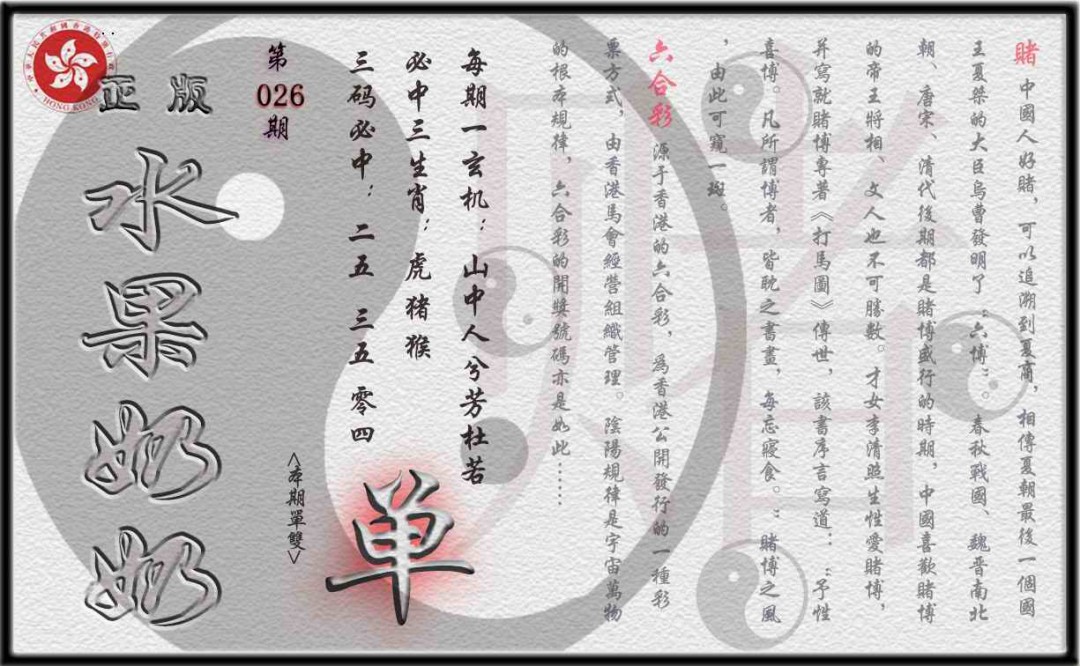 賭 中國人好賭，可以追溯到夏商，相傳夏朝最後一個國
王夏桀的大臣烏曹發明了“六博”。春秋戰國、魏晉南北
朝、唐宋、清代後期都是賭博盛行的時期，中國喜歡賭博
的帝王將相、文人也不可勝數。才女李清照生性愛賭博，
并寫就賭博專著《打馬圖》傳世，該書序言寫道：“予性
喜博。凡所謂博者，皆耽之書畫，每忘寢食。”賭博之風
，由此可窺一斑。
六合彩 源于香港的六合彩，為香港公開發行的一種彩
票方式，由香港馬會經營組織管理。陰陽規律是宇宙萬物
的根本規律，六合彩的開獎號碼亦是如此……
每期一玄机：山中人兮芳杜若
必中三生肖：虎猪猴
三码必中：二五 三五 零四
单
<本期單雙>
第
026
期
正版
水果奶奶
HONG KONG